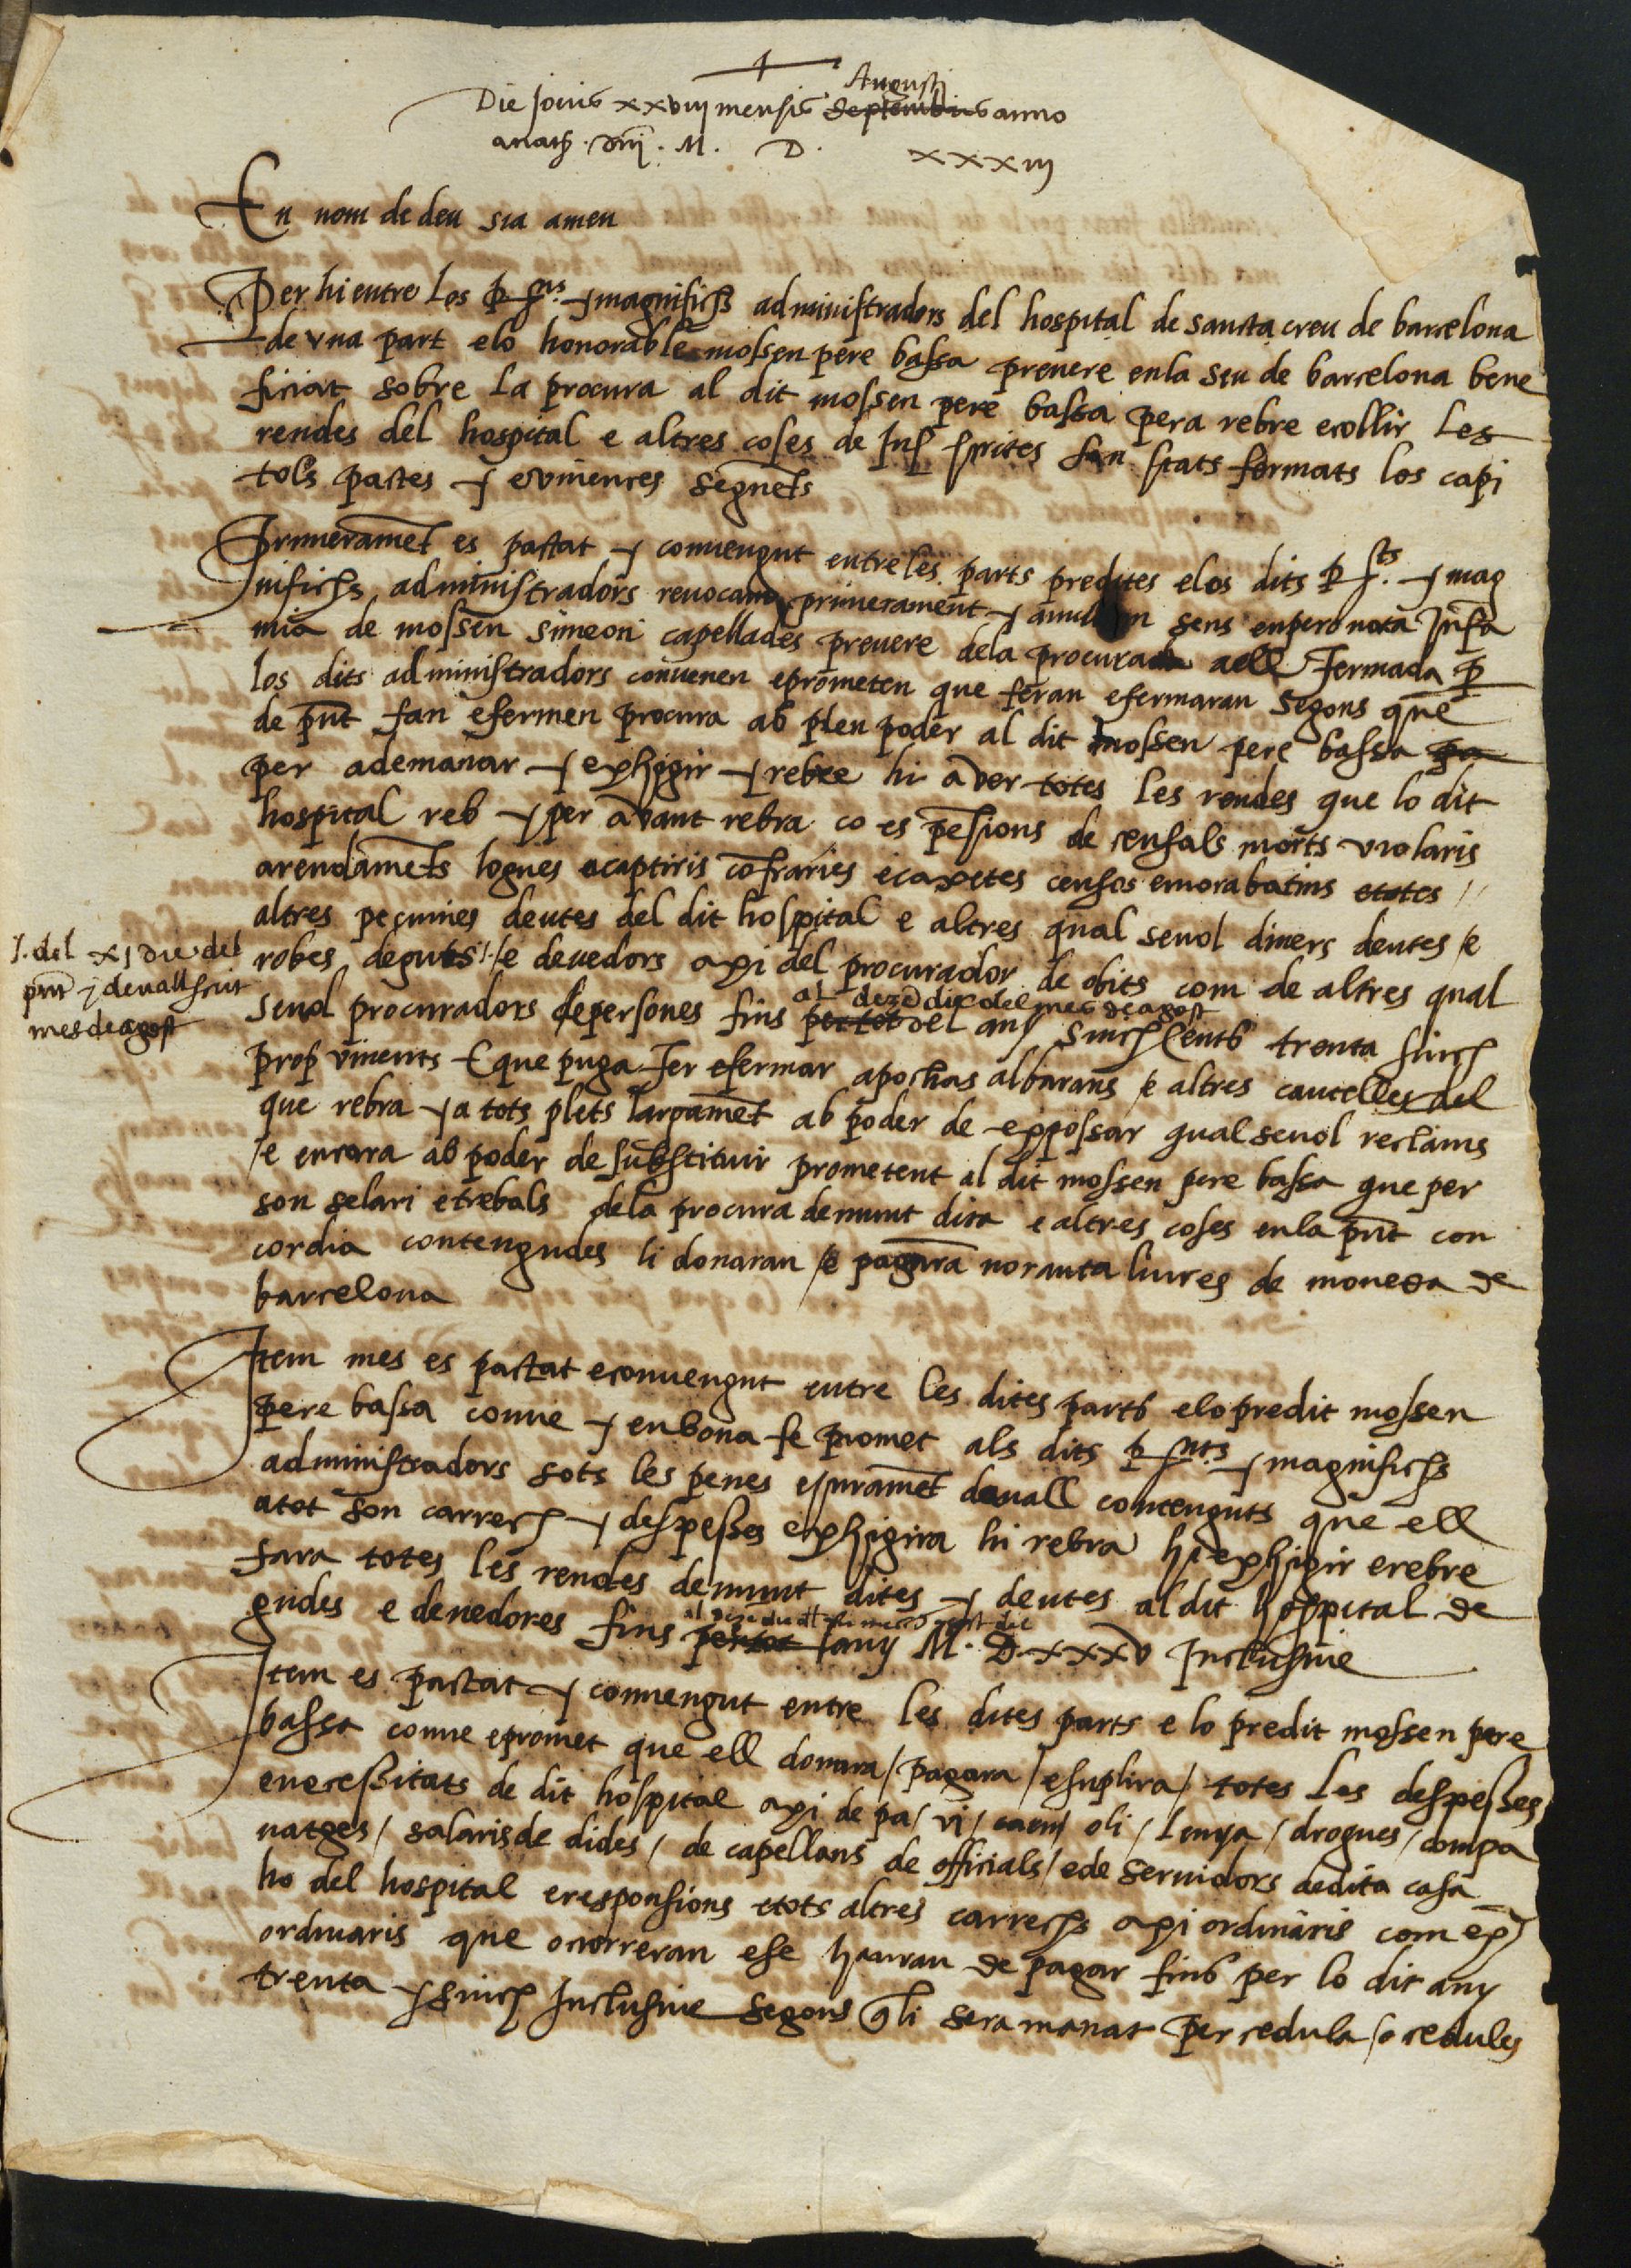 Augusti
Die Jovis xxviii mensis Septembris anno
a natt. dni. M. D. xxxiii
En nom de deu sia amen
Per hi entre los Rnts. y magnifichs administradors del hospital de sancta creu de barcelona
de vna part e lo honorable mossen pere bassa prevere en la seu de barcelona bene
ficiat sobre la procura al dit mossen pere bassa pera rebre e collir les
rendes del hospital e altres coses de Jus scrites son stats fermats los capi
tols pactes y avinences seguets
Primeramet es pactat y convengut entre les parts predites e los dits Rnts. y mag
nifichs administradors revocant primerament y sens empero nota Infa
mia de mossen simeon capellades prevere de la procura a ell fermada p
los dits administradors convenen e prometen que feran e fermaran segons que
de pnt fan e fermen procura ab plen poder al dit mossen pere bassa pa
per a demanar y exhigir y rebre hi aver totes les rendes que lo dit
hospital reb y per avant rebra co es pesions de censals morts violaris
arendamets logues acaptiris cofraries e caxetes censos e morabatins e totes
altres pecunies deutes del dit hospital e altres qual sevol diners deutes /e
robes deguts /e devedors axi del procurador de obits com de altres qual
/. del xi die del
pnt y devall scrit
mes de agost
al deze die del mes de agost
sevol procuradors de persones fins per tot del any sinch cents trenta sinch
prop vinents E que puga fer e fermar apochas albarans /e altres cautelles del
que rebra y a tots plets largamet ab poder de expossar qual sevol reclams
/e encara ab poder de substituir prometent al dit mossen pere bassa que per
son selari e trebals de la procura demunt dita e altres coses en la pnt con
cordia contengudes li donaran /e pagara noranta liures de moneda de
barcelona
Item mes es pactat e convengut entre les dites parts e lo predit mossen
pere bassa conve y en bona fe promet als dits Rnts y magnifichs
administradors sots les penes e juramet devall contenguts que ell
a tot son carrech y despesses exhigira hi rebra hi exhigir e rebre
fara totes les rendes demunt dites y deutes al dit hospital de
gudes e devedores fins per tot lany M. D. xxxv Inclusive
Item es pactat y convengut entre les dites parts e lo predit mossen pere
bassa conve e promet que ell donara / pagara / e suplira / totes les despesses
e necessitats de dit hospital axi de pa / vi / carn / oli / lenya / drogues / compa
natges / salaris de dides / de capellans de officials / e de servidors de dita casa
ho del hospital e responsions e tots altres carrechs axi ordinaris com ex
ordinaris que ocorreran e se hauran de pagar fins per lo dit any
trenta y sinch Inclusive segons q li sera manat per cedula / o cedules